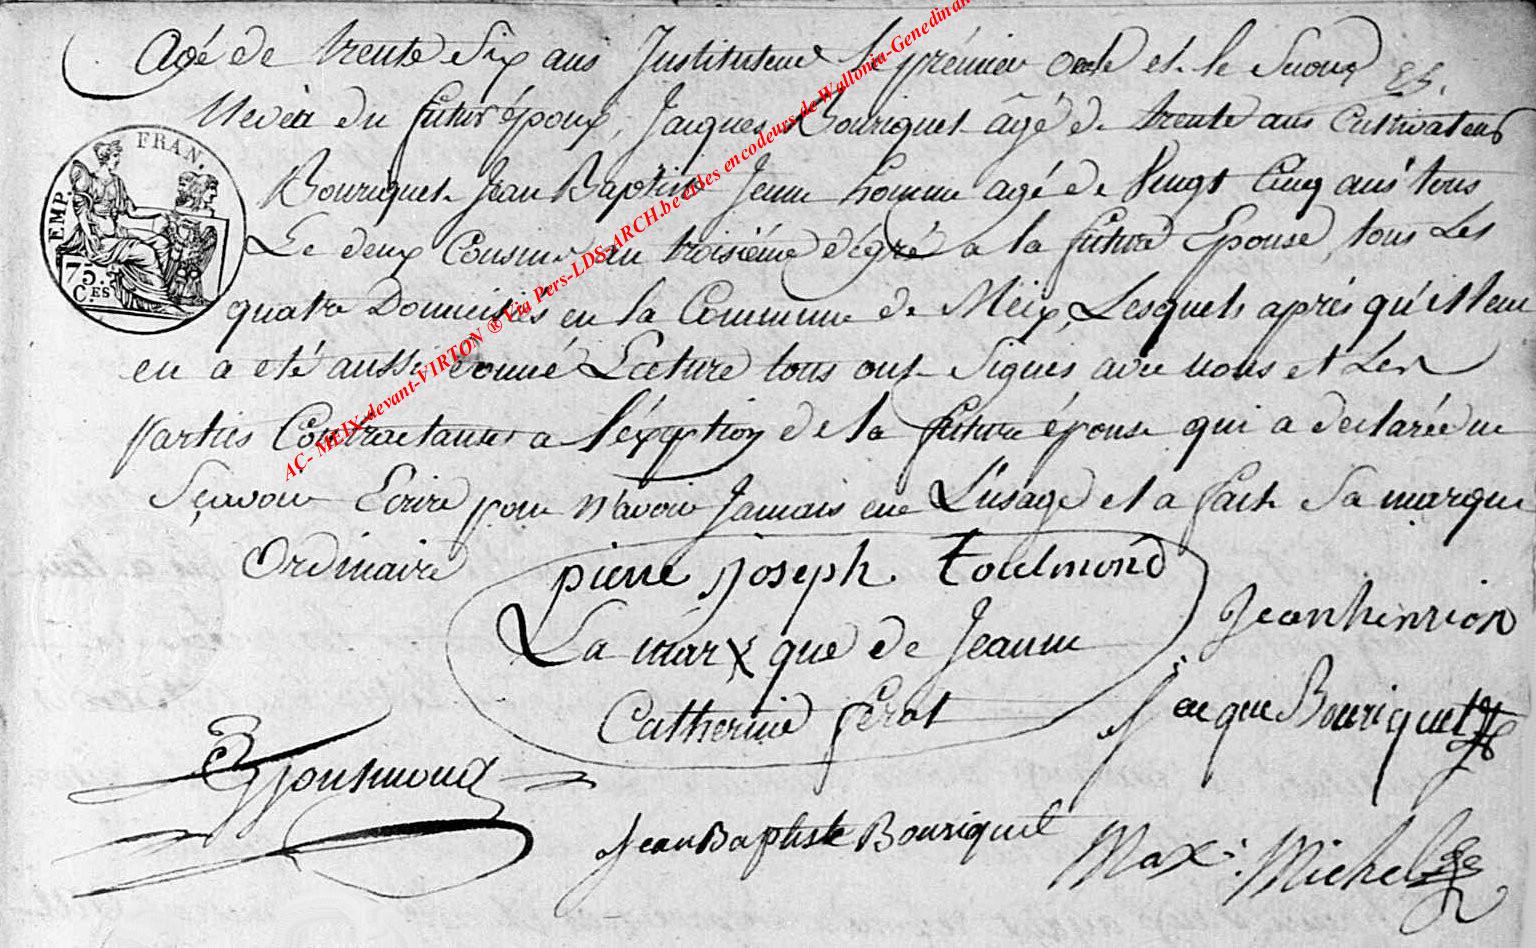 Agé de trente Six ans Instituteur le prémier oncle et le Second
Neveu du futur époux, Jacques Bouriquet âgé de trente ans Cultivateur
FRAN.
EMP.
75.
CES
Bouriquet Jean Baptiste Jeune homme agé de Vingt Cinq ans tous
Le deux Cousins au troisiéme dégré a la future Epouse, tous Les
quatre Domiciliés en la Commune de Meix, Lesquels aprés qu'il leur
en a été aussi donné Lecture tous ont Signés avec nous et Les
parties Contractantes a l'éxeption de la future épouse qui a declarée ne
Sçavoir Ecrire pour n'avoir Jamais eue L'usage et a fait Sa marque
Ordinaire
pierre joseph toulmond
La mar X que de Jeanne
Catherine Gerat
Jean henrion
Jacque Bouriquet
Jean Baptiste Bouriquet
Max: Michel
AC- MEIX-devant-VIRTON ® Via Pers-LDS-ARCH.be et les encodeurs de Wallonia-Genedinan